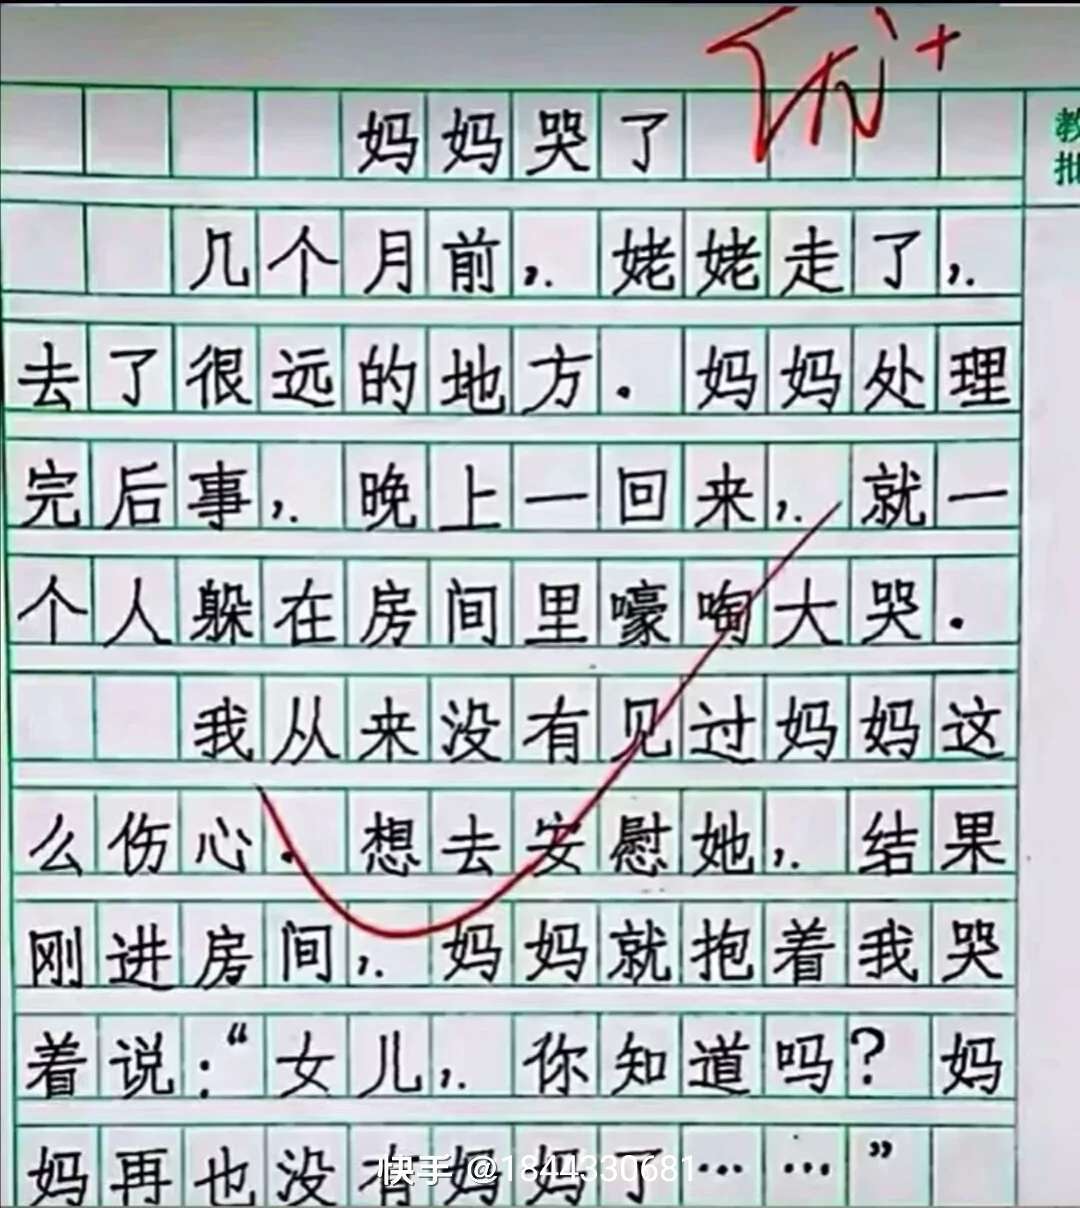 优+
妈妈哭了
教
批
几个月前,.姥姥走了,.
去了很远的地方.妈妈处理
完后事,.晚上一回来,.就一
个人躲在房间里嚎啕大哭.
我从来没有见过妈妈这
么伤心.想去安慰她,.结果
刚进房间,.妈妈就抱着我哭
着说:“女儿,.你知道吗?妈
妈再也没有妈妈了……”
快手 @1844330681